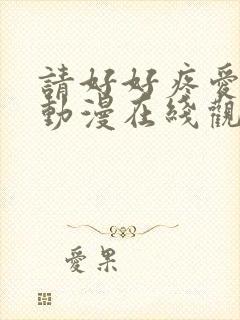 請好好疼愛
動漫在綫觀
愛果